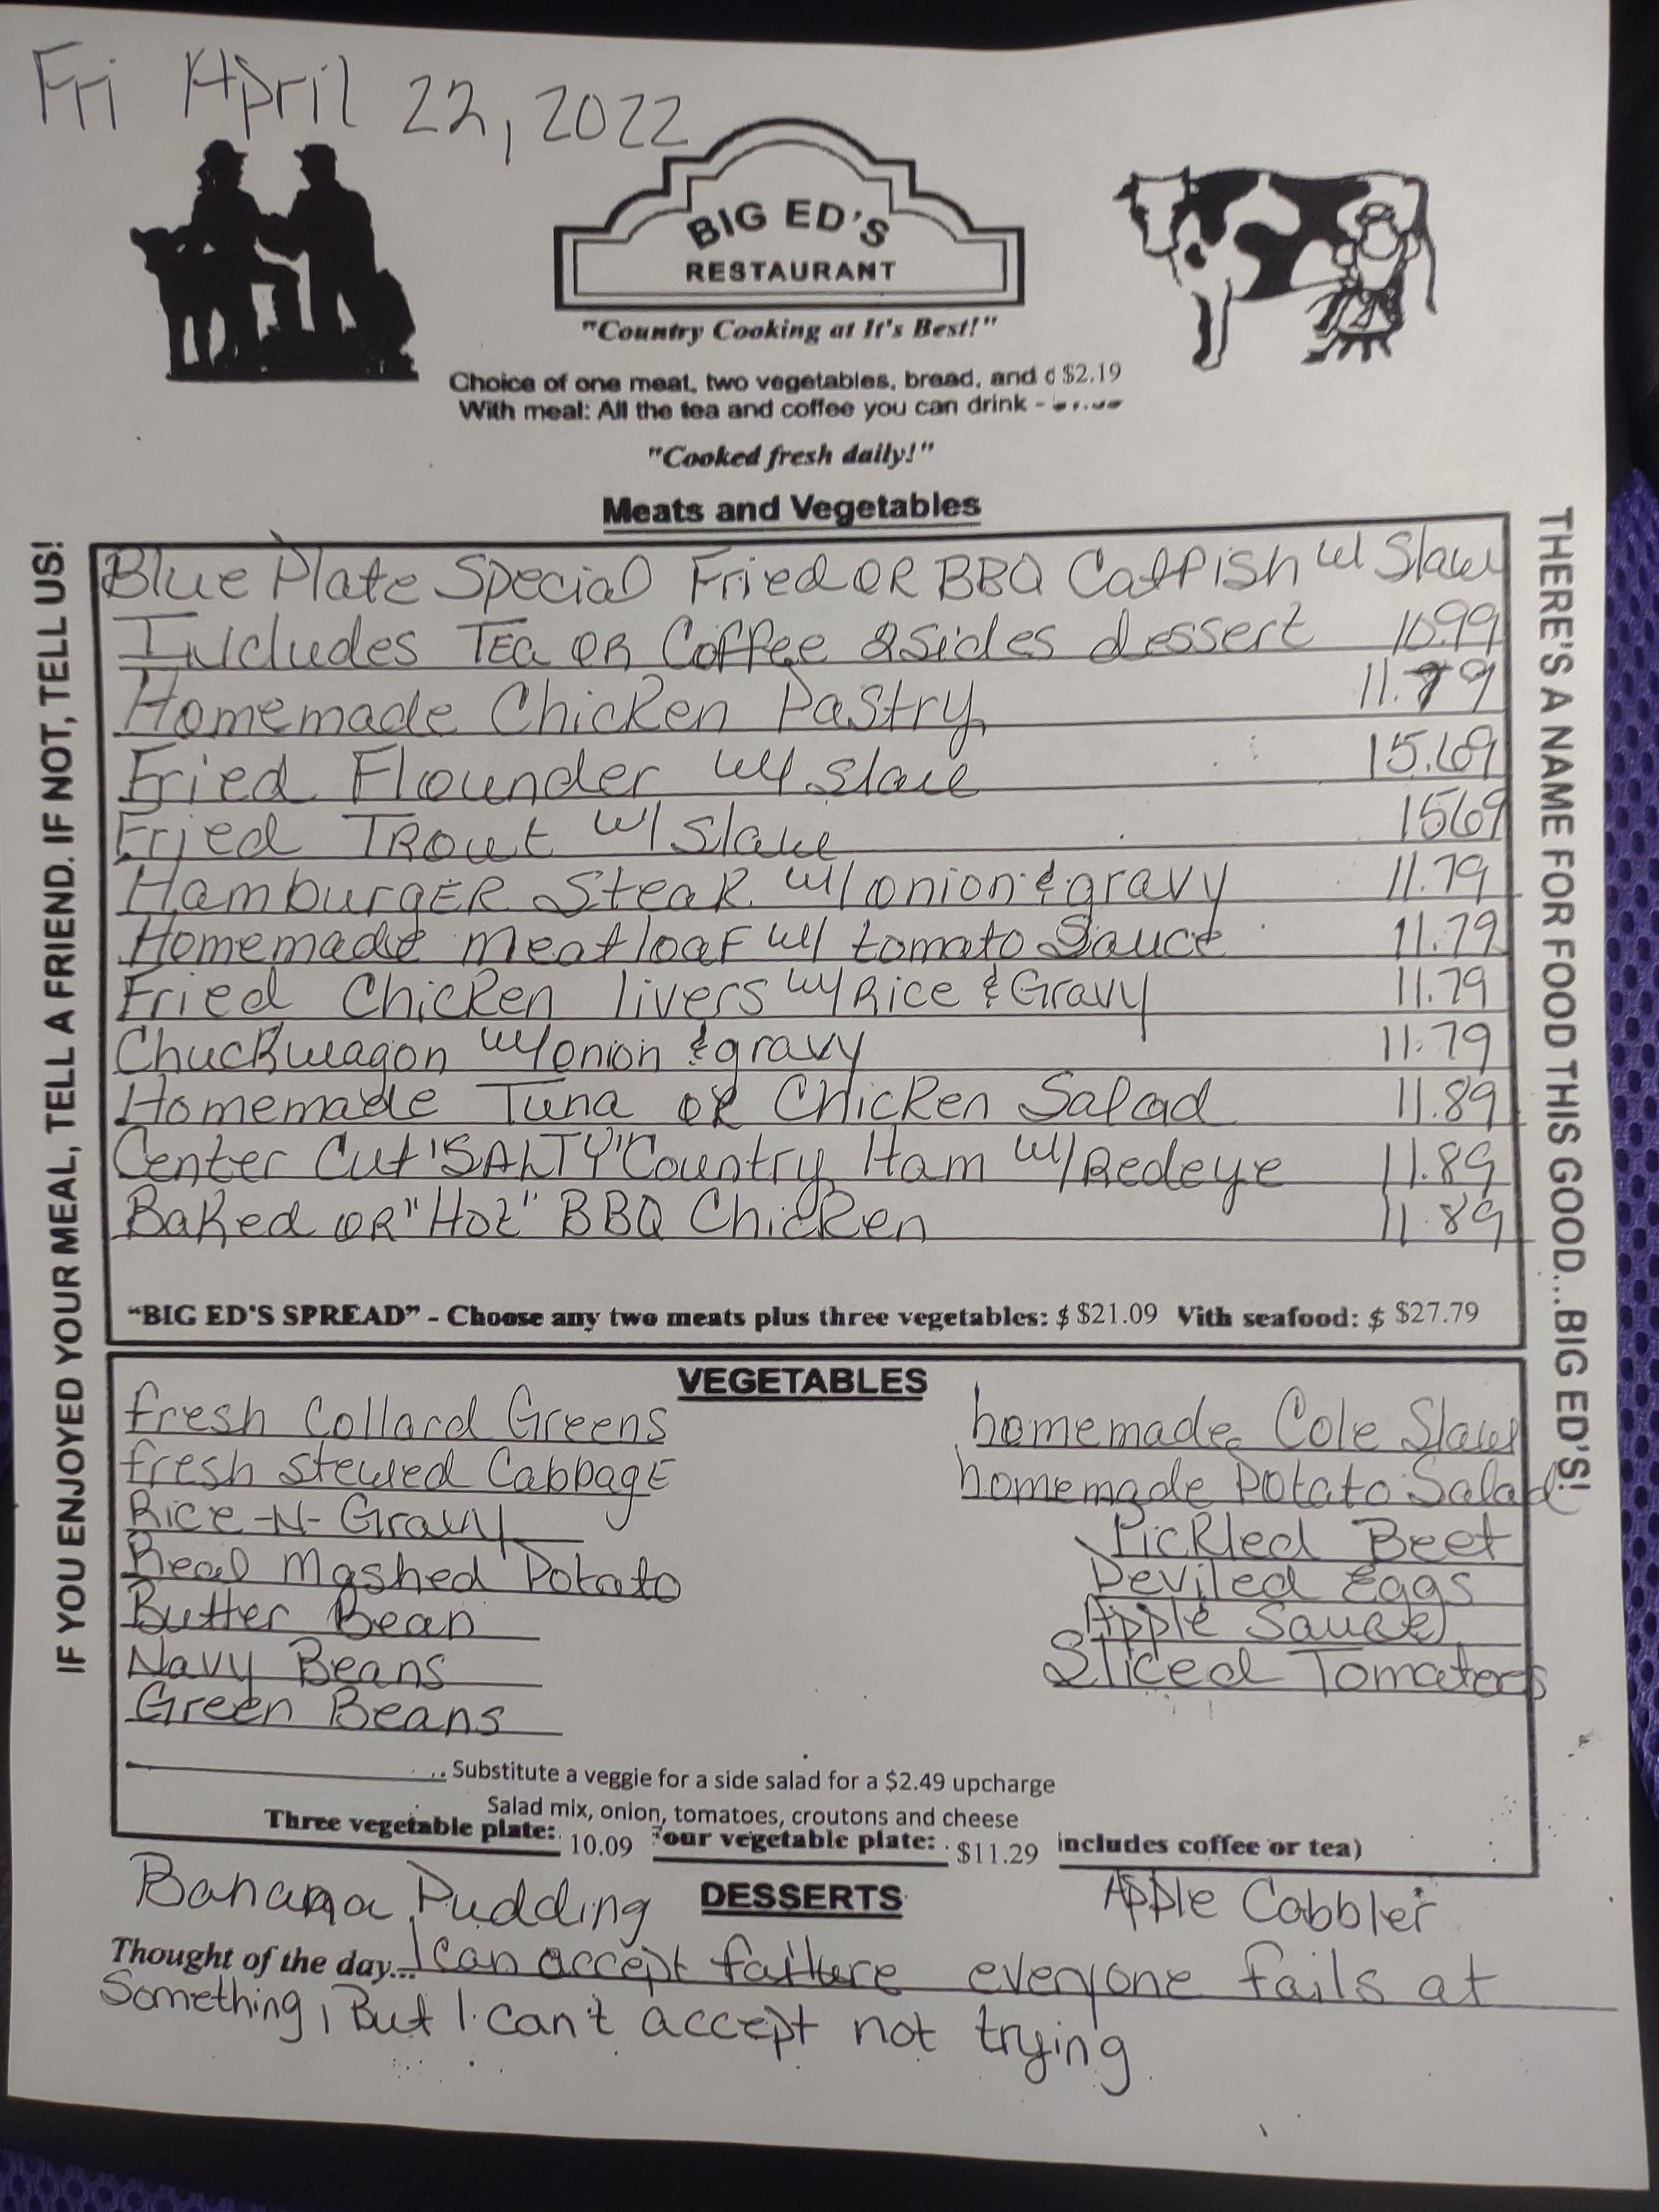 Fri April 22, 2022
BIG ED'S
RESTAURANT
"Country Cooking at It's Best!"
Choice of one meat, two vegetables, bread, and d $2.19
With meal: All the tea and coffee you can drink -
"Cooked fresh daily!"
Meats and Vegetables
IF YOU ENJOYED YOUR MEAL, TELL A FRIEND. IF NOT, TELL US!
THERE'S A NAME FOR FOOD THIS GOOD...BIG ED'S!
Blue Plate Special Fried OR BBQ Catfish w/ Slaw
Includes TEa OR Coffee 2 Sides dessert 10.99
Homemade Chicken Pastry 11.79
Fried Flounder w/ slaw 15.69
Fried TRout w/ Slaw 15.69
HamburgER Steak w/ onion & gravy 11.79
Homemade meatloaf w/ tomato Sauce 11.79
Fried Chicken livers w/ Rice & Gravy 11.79
Chuckwagon w/ onion & gravy 11.79
Homemade Tuna or Chicken Salad 11.89
Center Cut "SALTY" Country Ham w/ Redeye 11.89
Baked OR "Hot" BBQ Chicken 11.89
"BIG ED'S SPREAD" - Choose any two meats plus three vegetables: $ $21.09 Vith seafood: $ $27.79
VEGETABLES
fresh Collard Greens
fresh stewed CabbagE
Rice -N- Gravy
Real Mashed Potato
Butter Bean
Navy Beans
Green Beans
homemade Cole Slaw
homemade Potato Salad
Pickled Beet
Deviled Eggs
Apple Sauce
Sliced Tomatoes
.. Substitute a veggie for a side salad for a $2.49 upcharge
Salad mix, onion, tomatoes, croutons and cheese
Three vegetable plate: 10.09 our vegetable plate: $11.29 includes coffee or tea)
DESSERTS
Banana Pudding
Apple Cobbler
Thought of the day... I can accept failure everyone fails at
Something, But I can't accept not trying